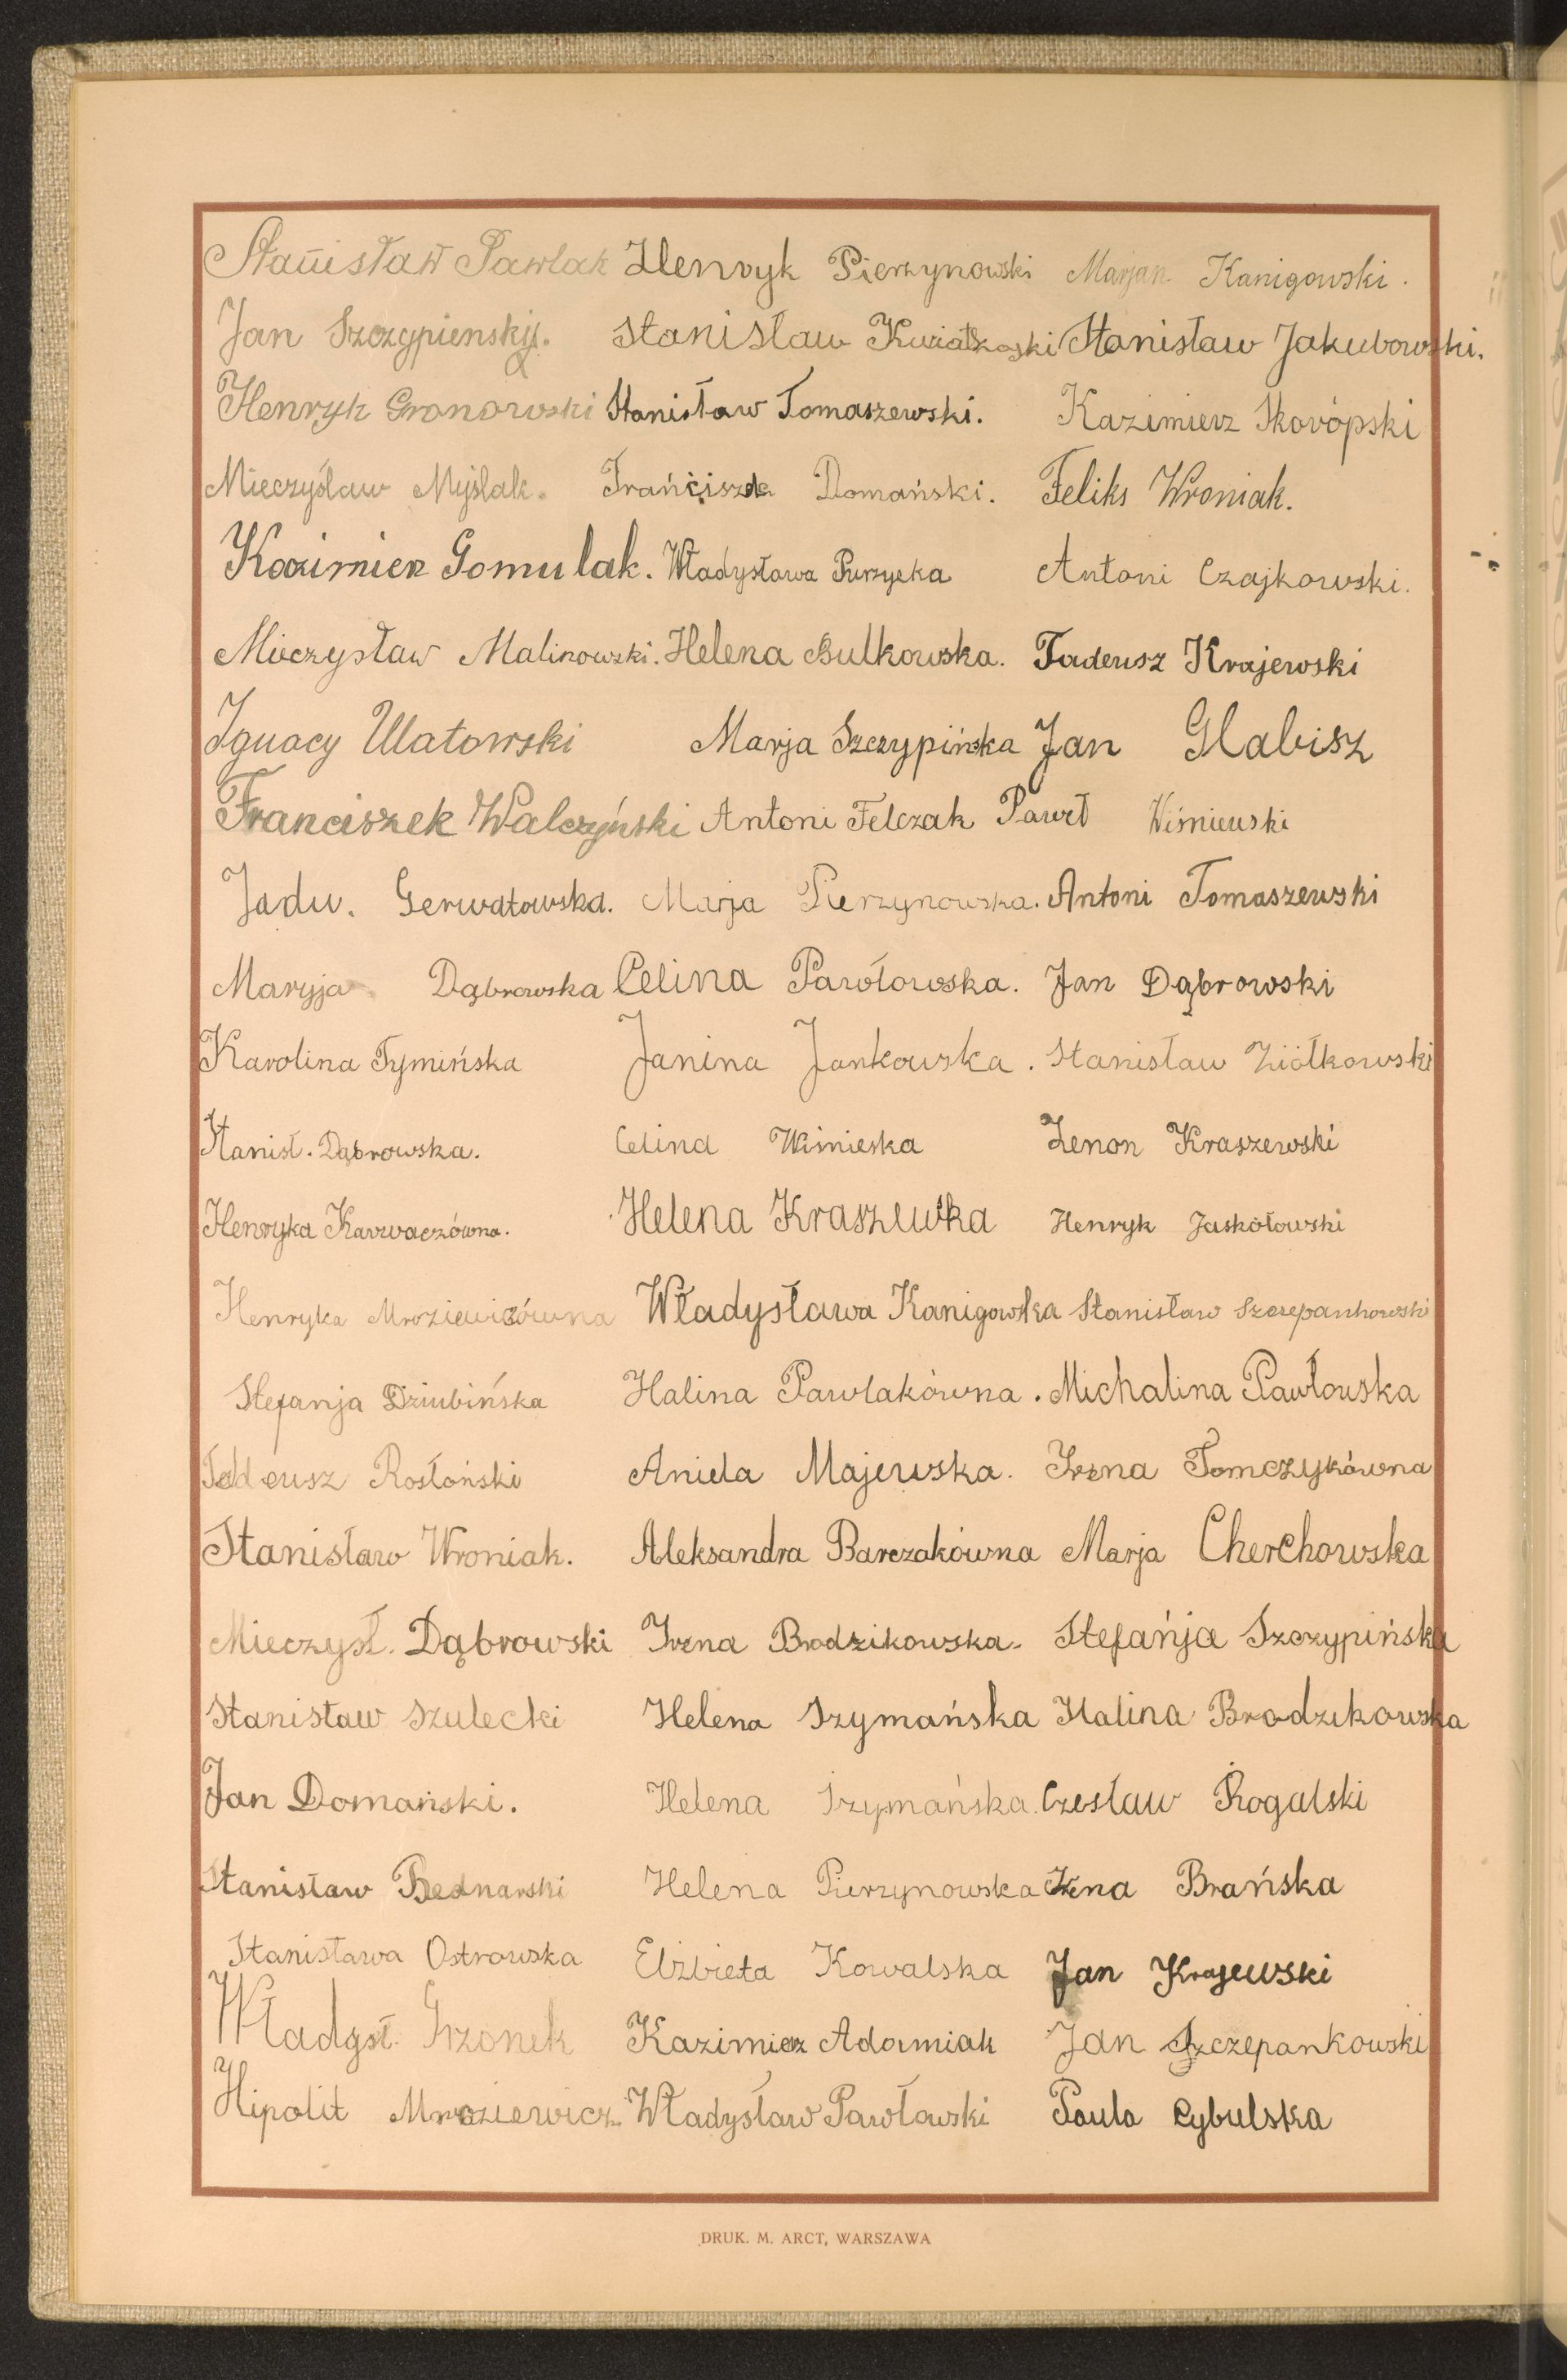 Stanisław Pawlak Henryk Pierzynowski Marjan Kanigowski.
Jan Szczypienski. Stanisław Kwiatkoski Stanisław Jakubowski.
Henryk Gronowski Stanisław Tomaszewski. Kazimierz Skorópski
Mieczysław Myślak. Domański. Feliks Wroniak.
Kazimierz Gomulak. Władysława Purzycka Antoni Czajkowski.
Mieczysław Malinowski. Helena Bulkowska. Tadeusz Krajewski
Ignacy Ulatowski Marja Szczypińska Jan Glabisz
Franciszek Walczyński Antoni Felczak Paweł Wiśniewski
Jadw. Gerwatowska. Marja Pierzynowska. Antoni Tomaszewski
Maryja Dąbrowska Celina Pawłowska. Jan Dąbrowski
Karolina Tymińska Janina Jankowska. Stanisław Ziółkowski
Stanisł. Dąbrowska. Celina Wiśnieska Zenon Kraszewski
Henryka Karwaczówna. Helena Kraszewska Henryk Jaskółowski
Henryka Mroziewiczówna Władysława Kanigowska Stanisław Szczepankowski
Stefanja Dziubińska Halina Pawlakówna. Michalina Pawłowska
Tadeusz Rosłoński Aniela Majewska. Irena Tomczykówna
Stanisław Wroniak. Aleksandra Barczakówna Marja Cherchowska
Mieczysł. Dąbrowski Irena Brodzikowska. Stefańja Szczypińska
Stanisław Szulecki Helena Szymańska Halina Brodzikowska
Jan Domański. Helena Szymańska. Czesław Rogalski
Stanisław Bednarski Helena Pierzynowska Irena Brańska
Stanisława Ostrowska Elżbieta Kowalska Jan Krajewski
Władysł. Grzonek Kazimierz Adamiak Jan Szczepankowski
Hipolit Mroziewicz. Władysław Pawłowski Paula Cybulska
DRUK. M. ARCT, WARSZAWA